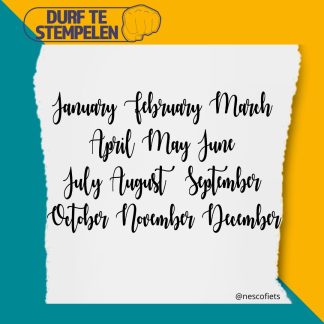 DURF TE
STEMPELEN
January February March
April May June
July August September
October November December
@nescofiets